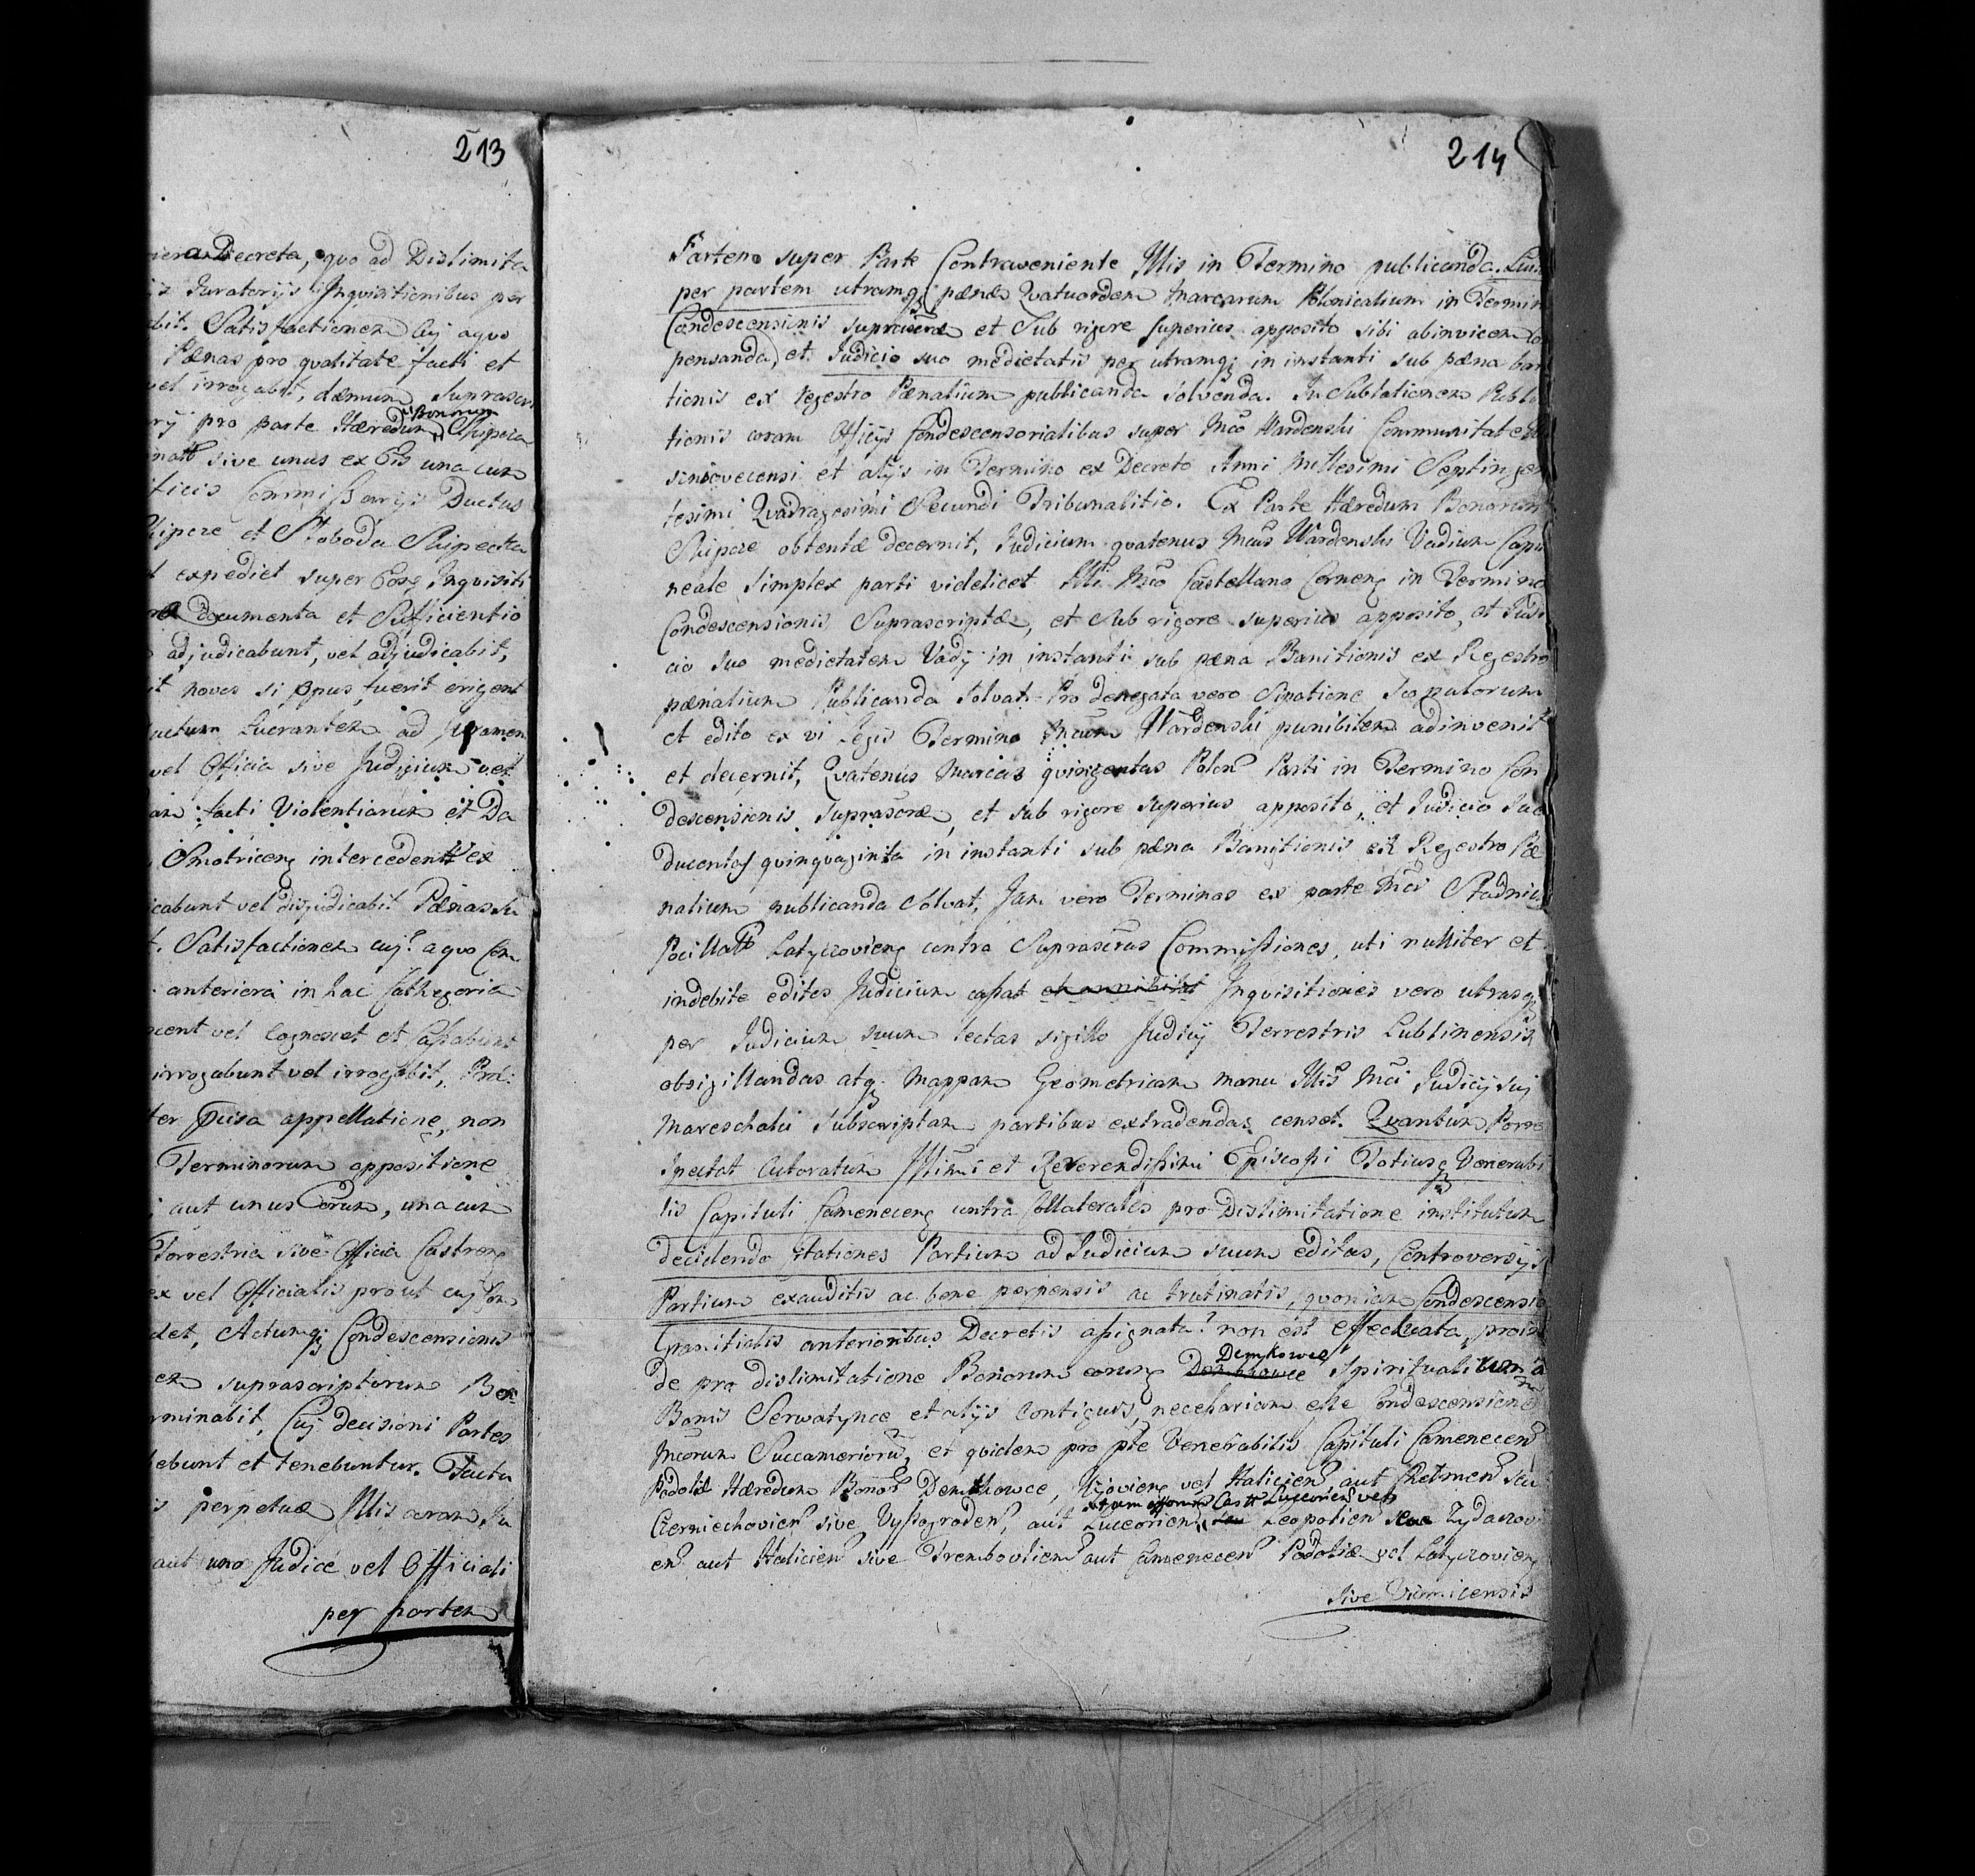 213
a Decreta, quo ad Dislimita
Juratorijs Inquisitionibus per
Satisfactionem Cuj aquo
Pænas pro qualitate facti et
vel irrogabit, dæmum Suprascr
pro parte Hæredum Bonorum
sive unus ex Eis una cum
Commissarijs Ductus
et Słoboda
expediet super Inquisiti
documenta et Sufficientio
adjudicabunt, vel adjudicabit,
novos si opus fuerit erigent
Lucrantem ad juramen
vel Officia sive Judicium vel
facti Violentiarum et Da
Smotricen intercedent ex
cabunt vel disjudicabit Pænas
Satisfactionem cuj aquo
anteriora in hac Cathegoria
vel Cognoscet et Cassabunt
irrogabunt vel irrogabit,
appellatione, non
Terminorum appositione
aut unus Eorum, una cum
Terrestria sive Officia Castren
vel Officialis prout cuj
det, Actumq Condescensionis
suprascriptorum
minabit, Cuj decisioni Partes
ebunt et tenebuntur. Factu
perpetuæ Illis coram Ju
aut uno Judice vel Officiali
per partem
214
Partem super Parte Contraveniente Illis in Termino publicanda.
per partem utramq pænæ Quatuordem Marcarum Polonicalium in Termin
Condescensionis suprascræ et Sub rigore superius apposito sibi abinvicem
pensanda, et Judicio suo medietatis per utramq in instanti sub pæna ban
tionis ex regestro Pænalium publicanda solvenda. In Sublationem Publi
tionis coram Officijs Condescensorialibus super Mco Wardenski Communitate
et alijs in Termino ex Decreto Anni Millesimi Septingen
tesimi Quadragesimi Secundi Tribunalitio. Ex Parte Hæredum Bonorum
obtentæ decernit, Judicium quatenus Mcus Wardenski Vadium Capi
neale simplex parti videlicet Illi Mco Castellano Camenq in Termino
Condescensionis Suprascriptæ, et sub rigore superius apposito, et Judi
cio suo medietatem Vadij in instanti sub pæna Banitionis ex Regestro
pænalium Publicanda solvat. Pro denegata vero
et edito ex vi Legis Termino Mcum Wardenski punibilem adinvenit
et decernit, Quatenus Marcas quingentas Polon Parti in Termino Con
descensionis suprascræ, et sub rigore superius apposito, et Judicio suo
ducentas quinquaginta in instanti sub pæna Banitionis ex Regestro Pæ
nalium publicanda solvat, Jam vero Terminos ex parte Mci Stadnic
Pocillatr Latyczovienq contra Suprascras Commissiones, uti nulliter et
indebite editos Judicium cassat et annihilat Inquisitiones vero utrasq
per Judicium suum lectas sigillo Judicij Terrestris Lublinensis
obsigillandas atq mappam Geometricam manu Illis Mci Judicij sui
Mareschalci subscriptam partibus extradendas censet. Quantum Porro
spectat Actoratum Illimi et Reverendissimi Episcopi Totiusq Venerabi
lis Capituli Camenecenq contra Collaterales pro Dislimitatione institutum
decidendo Citationes Partium ad Judicium suum editas, Controversijs
Partium exauditis ac bene perpensis ac trutinatis, quoniam Condescensio
Granitialis anterioribus Decretis assignata non est effectuata, proin
de pro dislimitatione Bonorum eorumq Demkowce Spiritualium a
Bonis Serwatynce et alijs Contiguis, necessariam esse Condescensionem
Mcorum Succameriorum, et quidem pro pte Venerabilis Capituli Camenecen
Podoliæ Hæredum Bonor Demkowce, Kijovienq vel Halicien aut Chelmen seu
et jam Castr Luceorien vel
Czerniechovien sive Vyssogroden, aut Luceorien, Leopolien seu Zydaczovi
en aut Halicien sive Trembovlien aut Camenecen Podoliæ vel Latyczovienq
sive Winnicensis